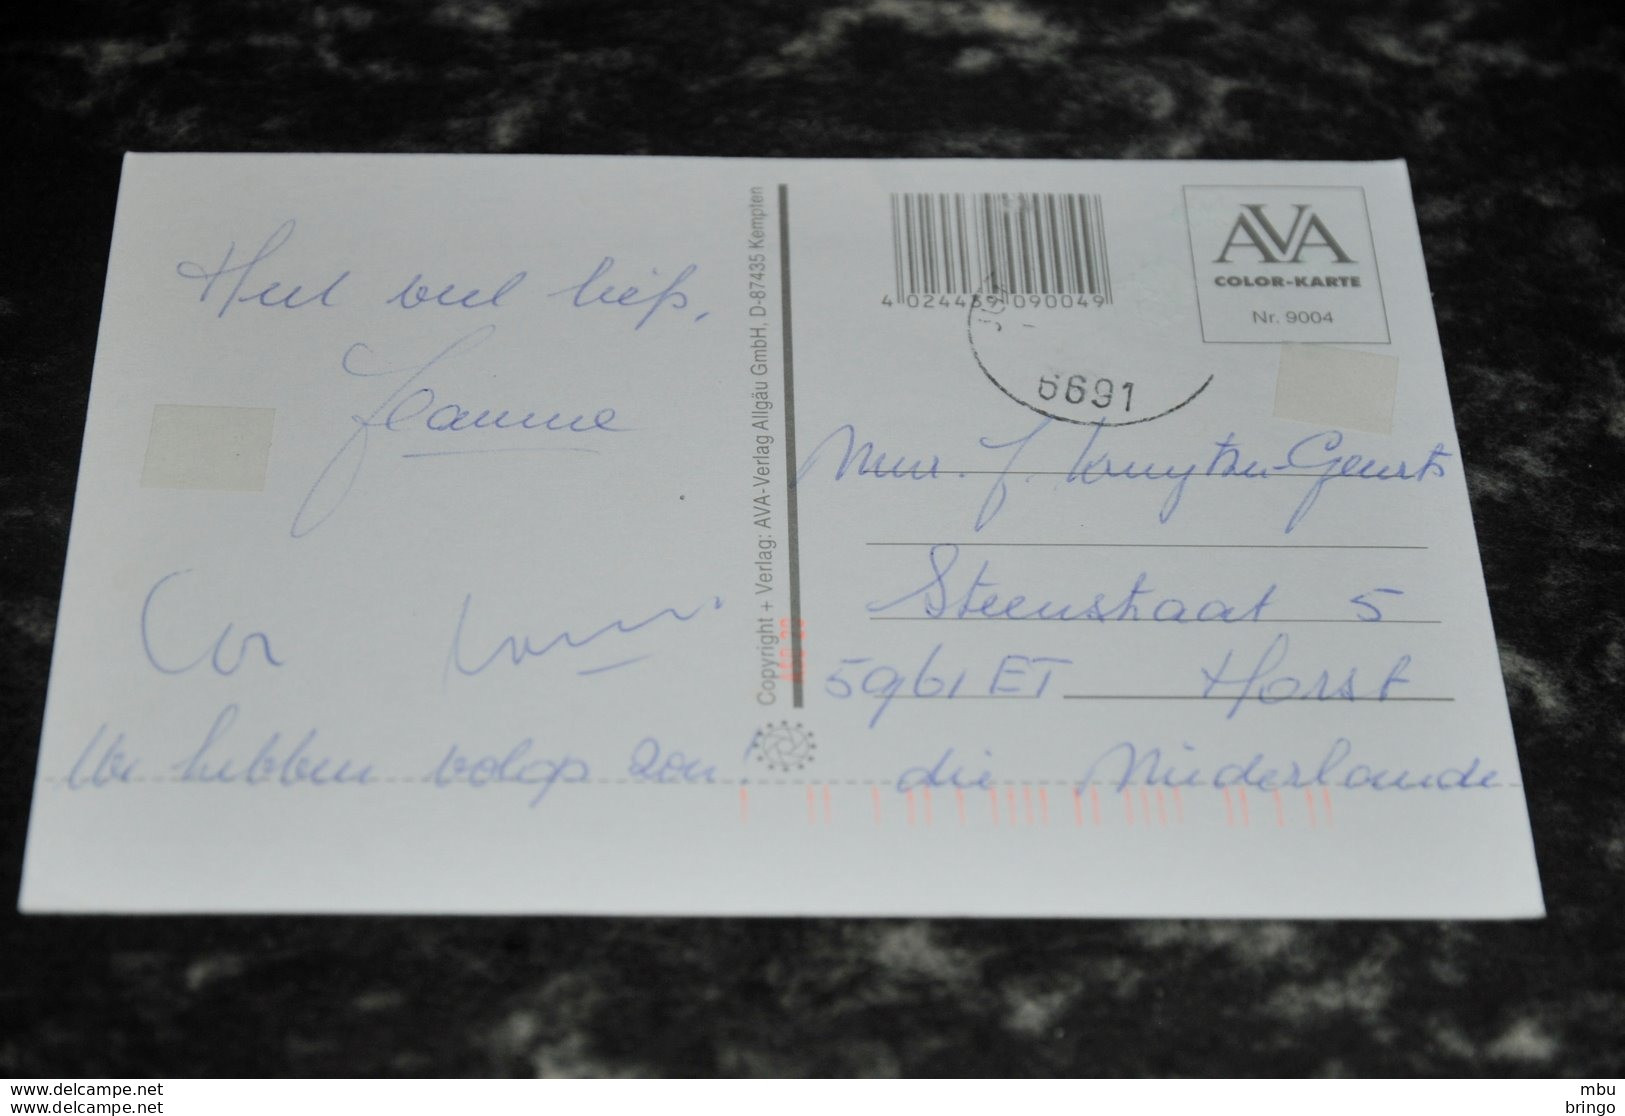 Heel veel liefs,
Jeanne
Cor
We hebben volop zon!
Copyright + Verlag: AVA-Verlag Allgäu GmbH, D-87435 Kempten
4 024469 090049
AVA
COLOR-KARTE
Nr. 9004
6691
Mevr. J. -Geurts
Steenstraat 5
5961 ET Horst
die Niederlande
www.delcampe.net
www.delcampe.net
mbu
bringo